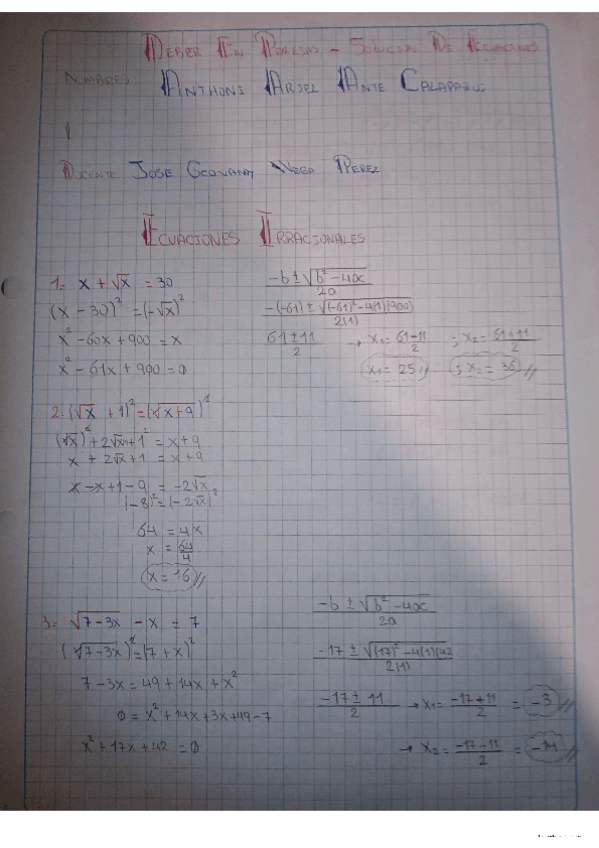 DEBER EN PAREJAS - SOLUCION DE ECUACIONES
NOMBRES: ANTHONI ARIEL ANTE CALAPAQUI
DOCENTE JOSE GEOVANNY VEGA PEREZ
ECUACIONES IRRACIONALES
1= x + √x = 30
(x - 30)² = (-√x)²
x² - 60x + 900 = x
x² - 61x + 900 = 0
-b ± √b² - 4ac / 2a
-(-61) ± √(-61)² - 4(1)(900) / 2(1)
61 ± 11 / 2 → x₁ = 61-11 / 2 ; x₂ = 61+11 / 2
x₁ = 25 // ; x₂ = 36 //
2: (√x + 1)² = (√x+9)²
(√x)² + 2√x·1 + 1² = x+9
x + 2√x + 1 = x+9
x - x + 1 - 9 = -2√x
(-8)² = (-2√x)²
64 = 4x
x = 64/4
x = 16 //
3= √7-3x - x = 7
(√7-3x)² = (7 + x)²
7 - 3x = 49 + 14x + x²
0 = x² + 14x + 3x + 49 - 7
x² + 17x + 42 = 0
-b ± √b² - 4ac / 2a
-17 ± √(17)² - 4(1)(42 / 2(1)
-17 ± 11 / 2 → x₁ = -17+11 / 2 = -3 //
→ x₂ = -17-11 / 2 = -14 //